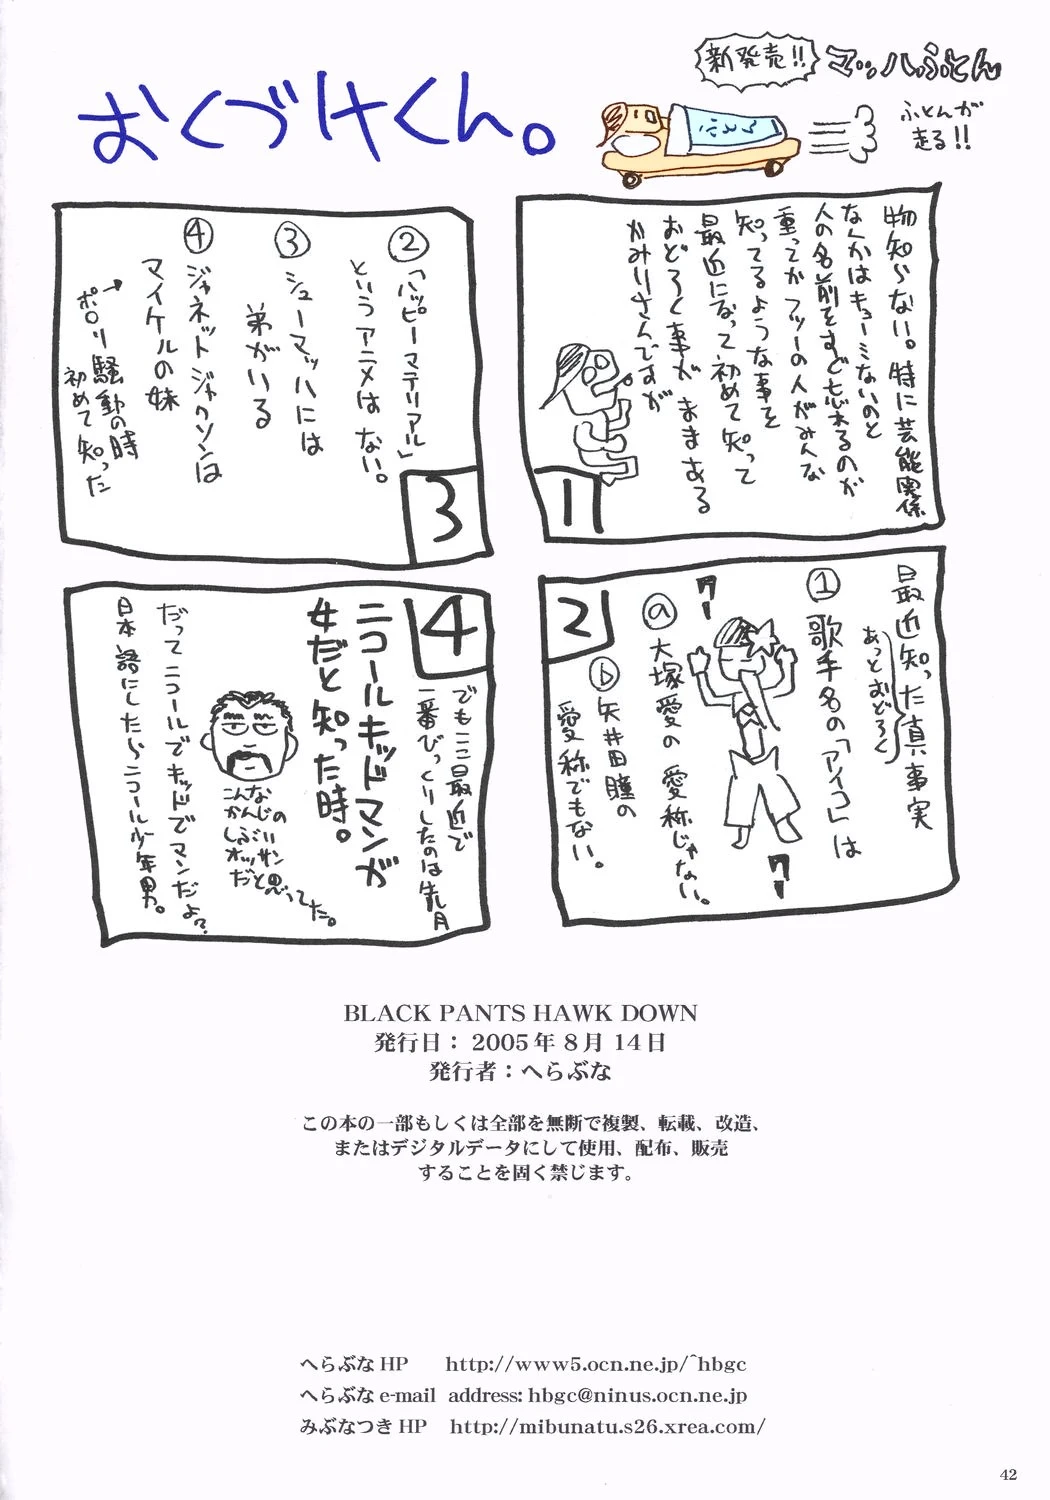 おくづけくん。
新発売!!
マッハふとん
ふとんが
走る!!
ふとん
物知らない。特に芸能関係
なんかはキョーミないのと
人の名前をすぐ忘れるのが
重ってかフツーの人がみんな
知ってるような事を
最近になって初めて知って
おどろく事がままある
かみりさんですが
1
最近知った真事実
あっとおどろく
①歌手名の「アイコ」は
クー
クー
ⓐ大塚愛の愛称じゃない。
ⓑ矢井田瞳の
愛称でもない。
2
②「ハッピーマテリアル」
というアニメはない。
③シューマッハには
弟がいる
④ジャネットジャクソンは
マイケルの妹
→ポロリ騒動の時
初めて知った
3
でもここ最近で
一番びっくりしたのは先月
ニコールキッドマンが
女だと知った時。
こんな
かんじの
しぶい
オッサン
だと思ってた。
だってニコールでキッドでマンだよ?
日本語にしたらニコール少年男。
4
BLACK PANTS HAWK DOWN
発行日：2005年8月14日
発行者：へらぶな
この本の一部もしくは全部を無断で複製、転載、改造、
またはデジタルデータにして使用、配布、販売
することを固く禁じます。
へらぶなHP http://www5.ocn.ne.jp/~hbgc
へらぶなe-mail address: hbgc@ninus.ocn.ne.jp
みぶなつきHP http://mibunatu.s26.xrea.com/
42